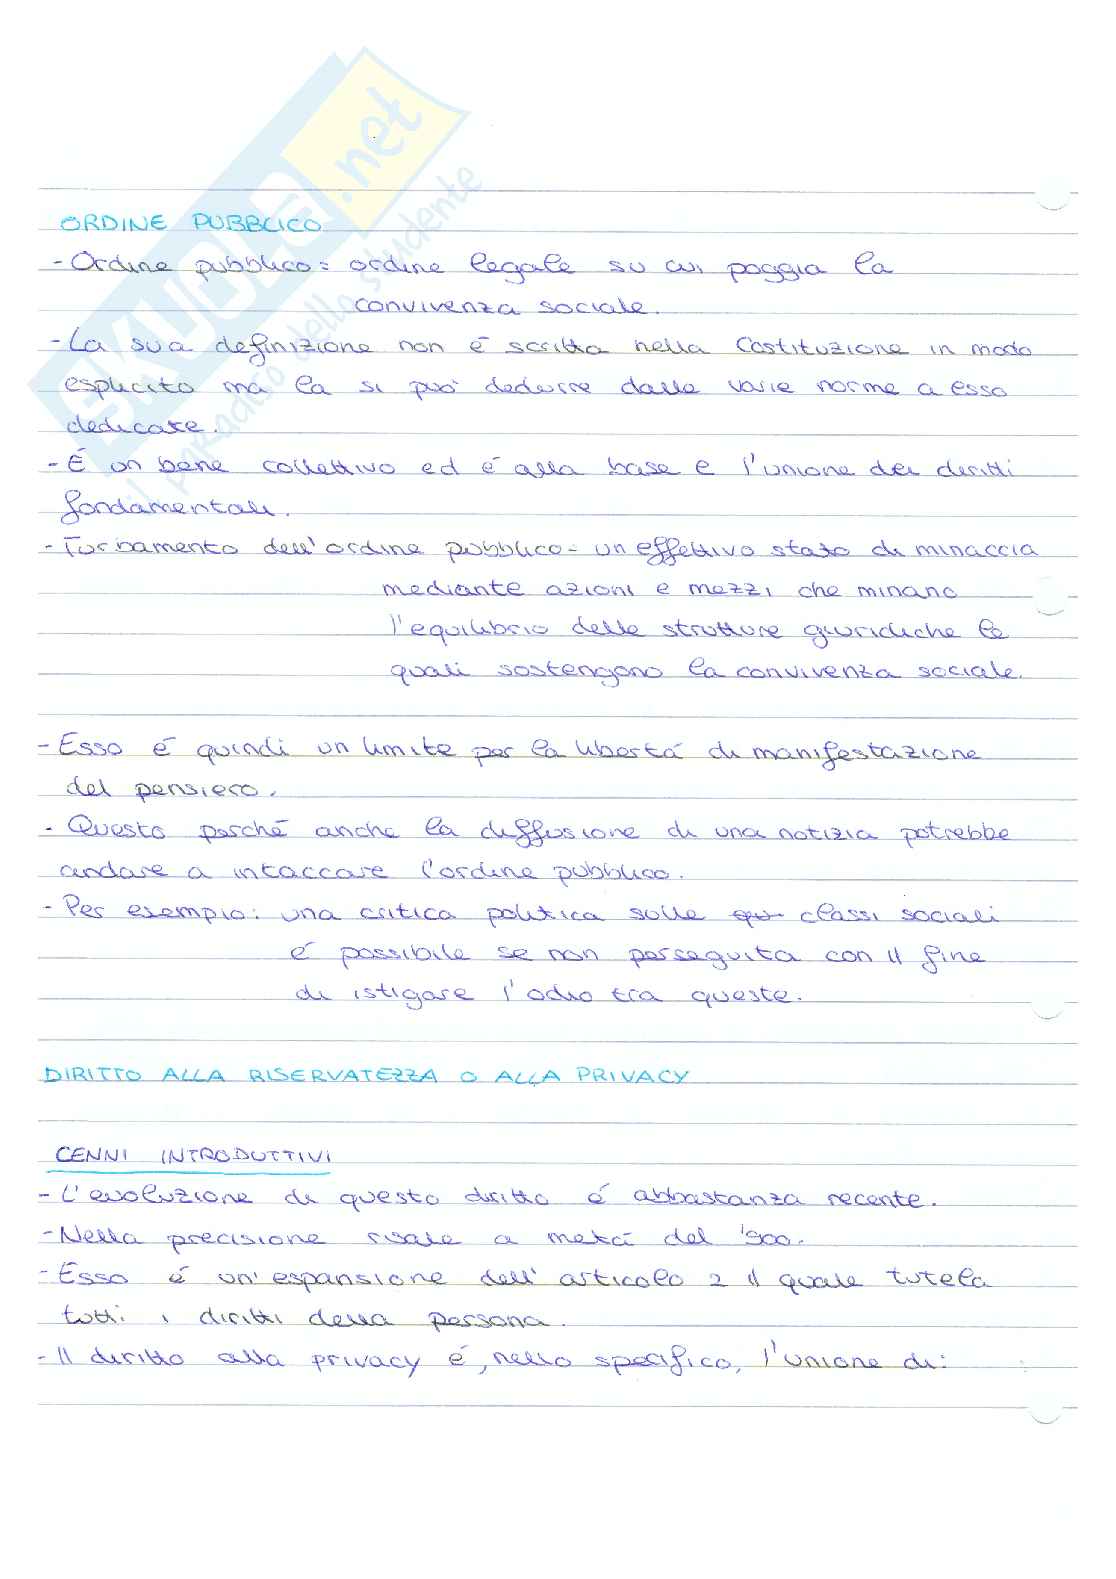 SKUOLA.net
il paradiso dello studente
ORDINE PUBBLICO
- Ordine pubblico = ordine legale su cui poggia la
convivenza sociale.
- La sua definizione non é scritta nella Costituzione in modo
esplicito ma la si può dedurre dalle varie norme a esso
dedicate.
- É un bene collettivo ed é alla base e l'unione dei diritti
fondamentali.
- Turbamento dell'ordine pubblico = un effettivo stato di minaccia
mediante azioni e mezzi che minano
l'equilibrio delle strutture giuridiche le
quali sostengono la convivenza sociale.
- Esso é quindi un limite per la libertá di manifestazione
del pensiero.
- Questo perché anche la diffusione di una notizia potrebbe
andare a intaccare l'ordine pubblico.
- Per esempio: una critica politica sulle classi sociali
é possibile se non perseguita con il fine
di istigare l'odio tra queste.
DIRITTO ALLA RISERVATEZZA O ALLA PRIVACY
CENNI INTRODUTTIVI
- L'evoluzione di questo diritto é abbastanza recente.
- Nella precisione risale a metá del '900.
- Esso é un'espansione dell'articolo 2 il quale tutela
tutti i diritti della persona.
- Il diritto alla privacy é, nello specifico, l'unione di: